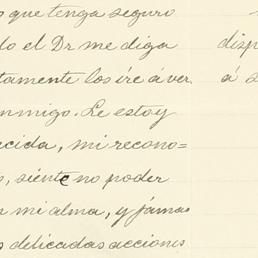 que tenga seguro
lo el Dr me diga
tamente los iré á ver
nmigo. Le estoy
ecida, mi recono=
, siento no poder
n mi alma, y jamas
s delicadas acciones
disp
á s